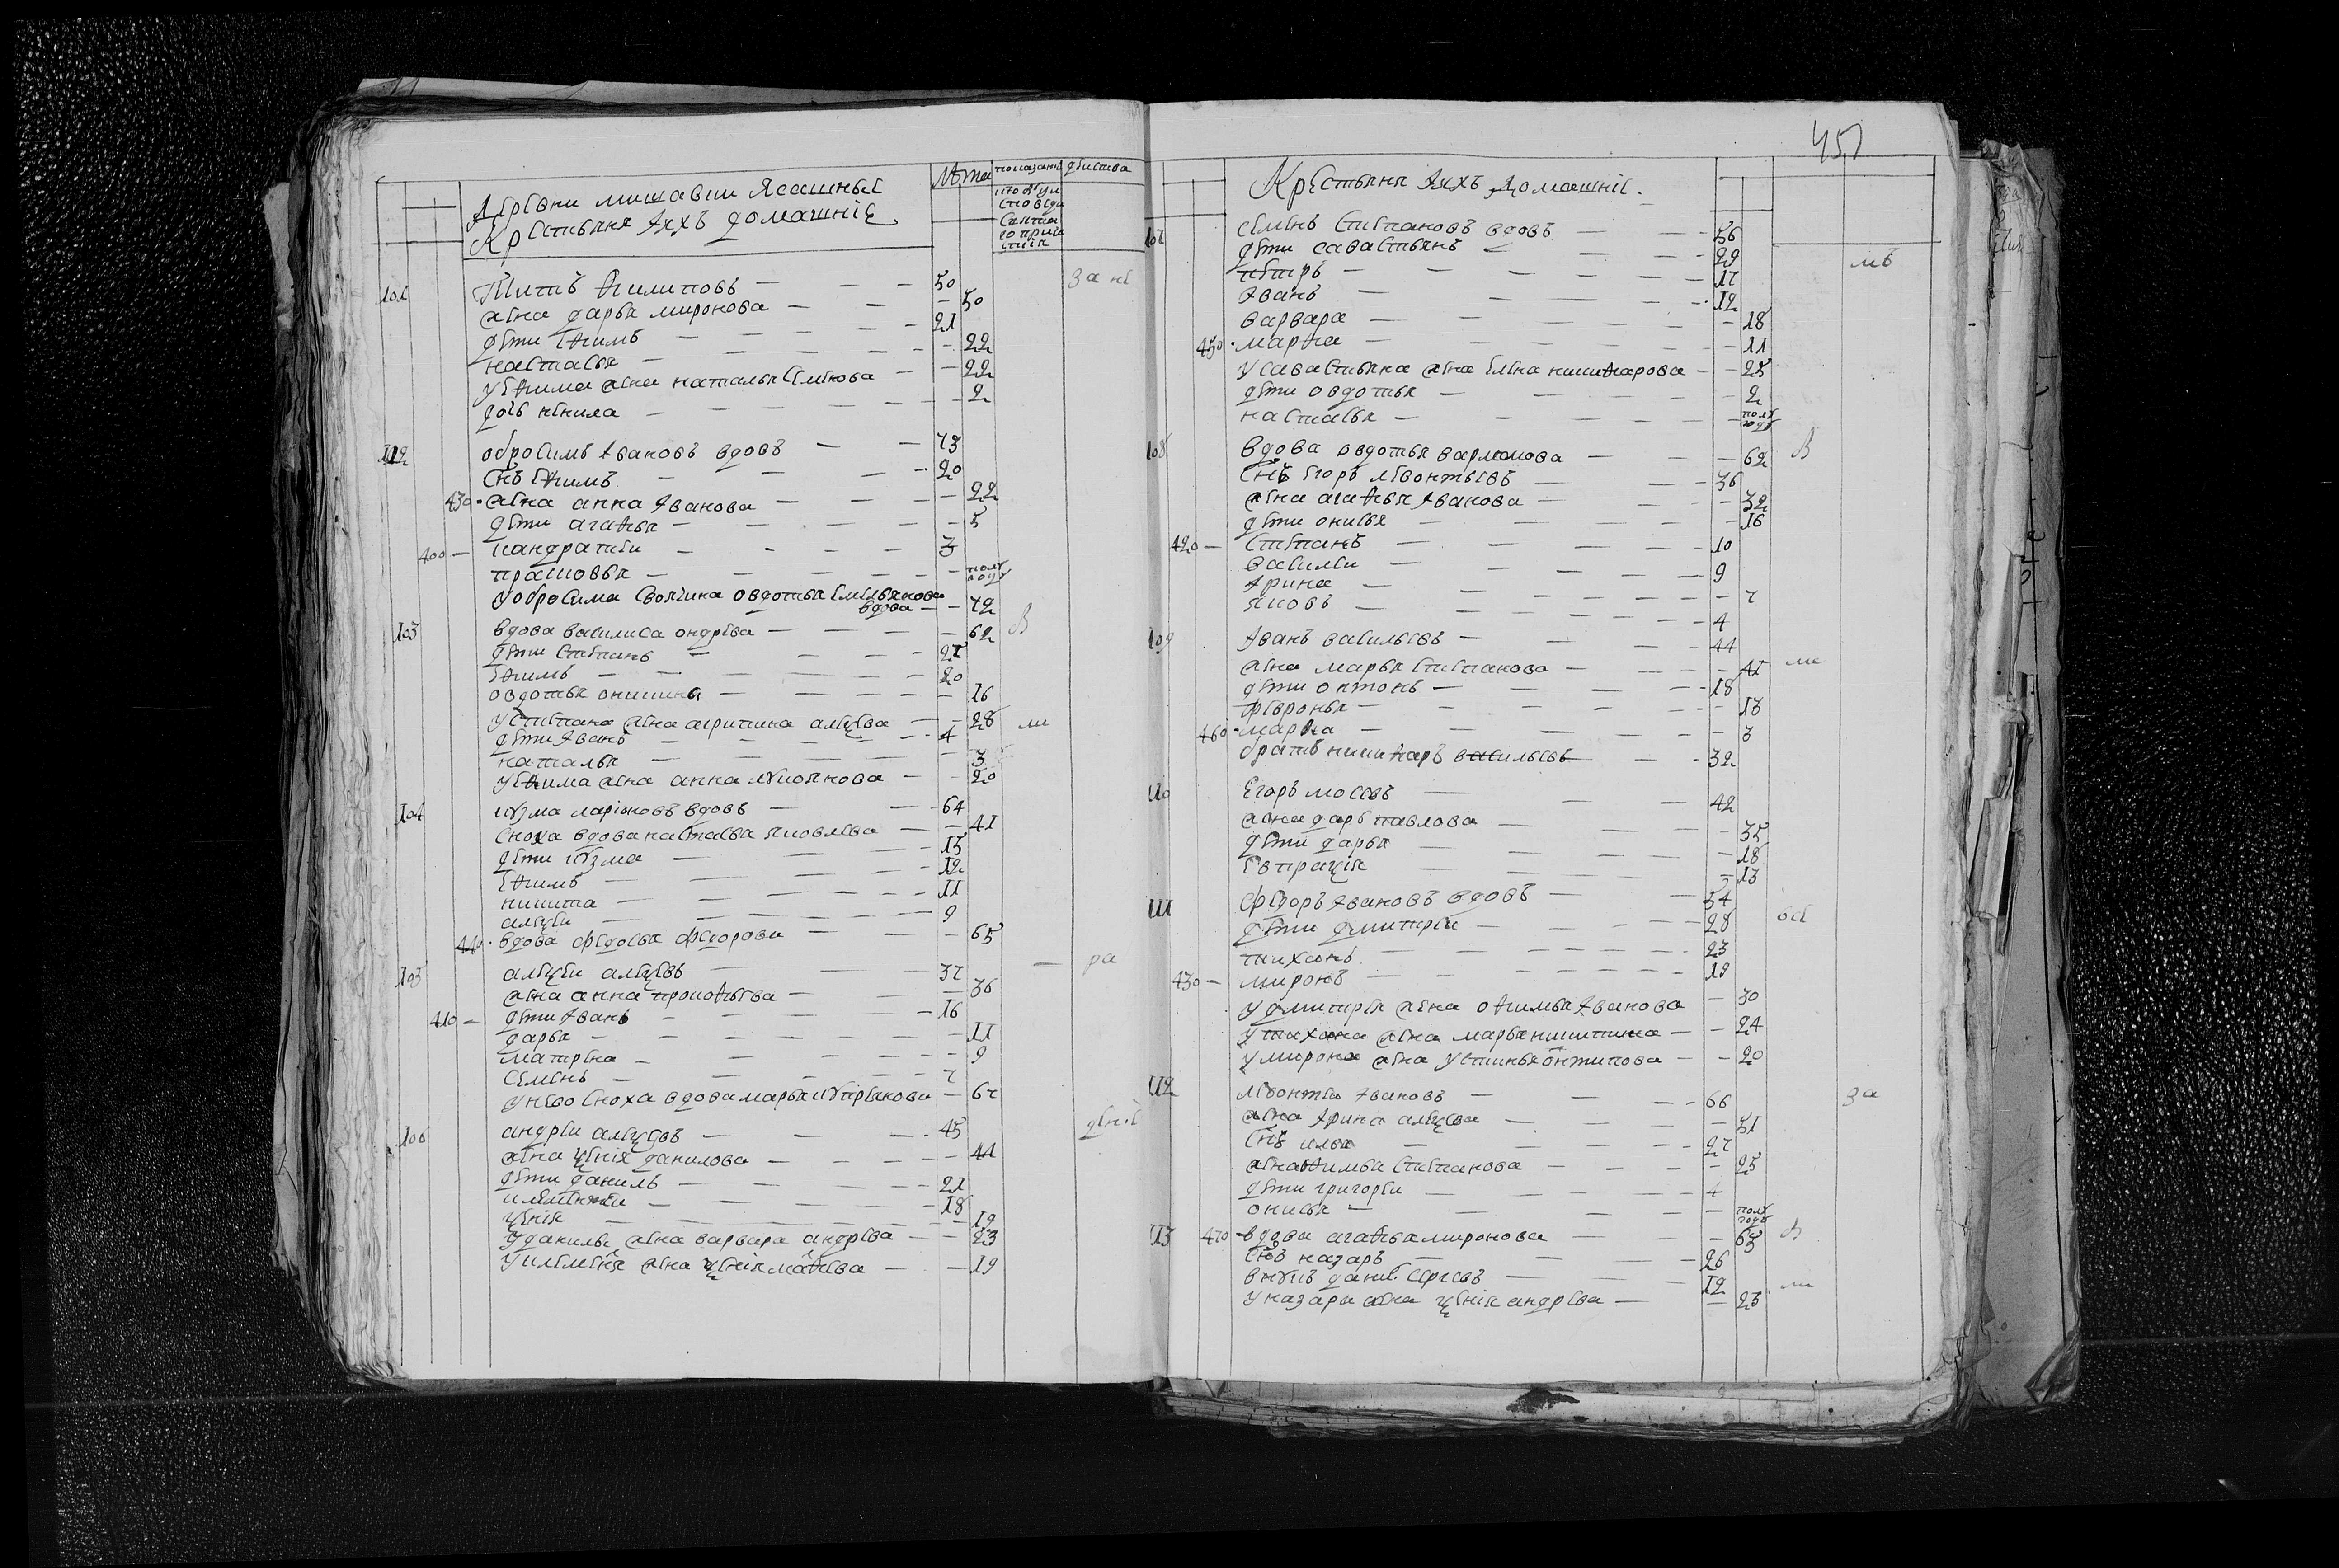 457
Деревни мишавки Ясашные
Крестьяня Ихъ домашние
Лѣта
показание
действа
101
Титъ Филиповъ — 50
жена дарья миронова — 50
дети Ефимъ — 21
настасья — 22
у Ефима жена наталья Семенова — 22
дочь ненила — 2
102
обросимъ Ивановъ вдовъ — 73
снъ Ефимъ — 20
430 жена анна Иванова — 22
дети агафья — 5
400 — кандратеи — 3
прасковья — полугоду
у обросима своячина овдотья Емельянова вдова — 72
103
вдова василиса ондрева — 62 В
дети Степанъ
Ефимъ — 20
овдотья — 16
у степана жена агрипина алексева — 28
дети Иванъ — 4
наталья — 3
у Ефима жена анна — 20
104
кузма ларионовъ вдовъ — 64
сноха вдова настасья яковлева — 41
дети кузма — 15
Ефимъ — 12
никита — 11
алексеи — 9
440 вдова федосья федорова — 65
105
алексеи алексевъ — 37
жена анна прокофьева — 36
410 — дети Иванъ — 16
дарья — 11
матрена — 9
семенъ — 7
у него сноха вдова марья куприянова — 67
106
андреи алексевъ — 45
жена ксения данилова — 44
дети данилъ — 21
климентеи — 18
ксения — 19
у данилы жена варвара андрева — 23
у клементия жена ксения — 19
Крестьяня Ихъ домашние
107
семенъ степановъ вдовъ — 56
дети савастьянъ — 29
петръ — 17
Иванъ — 12
варвара — 18
450 марфа — 11
у савастьяна жена елена никифорова — 25
дети овдотья — 2
настасья — полугоду
108
вдова овдотья — 62 В
снъ егоръ левонтьевъ — 36
жена агафья Иванова — 32
дети онисья — 16
420 — степанъ — 10
василеи — 9
Ирина — 7
яковъ — 4
109
Иванъ васильевъ — 44
жена марья степанова — 41
дети онтонъ — 18
февронья — 13
460 марфа — 3
братъ никифаръ васильевъ — 32
110
Егоръ — 42
жена дарья павлова — 35
дети дарья — 18
евпраксия — 13
111
федоръ Ивановъ вдовъ — 54
дети дмитреи — 28
тихонъ — 23
430 — миронъ — 19
у дмитрея жена офимья Иванова — 30
у тихона жена марья никитина — 24
у мирона жена устинья онтипова — 20
112
левонтеи Ивановъ — 66
жена Ирина алексева — 51
снъ илья — 27
жена фимья степанова — 25
дети григореи — 4
онисья — полугоду
113
470 вдова агафья миронова — 65 В
снъ назаръ — 26
внукъ данил сергевъ — 12
у назара жена ксения андрева — 23